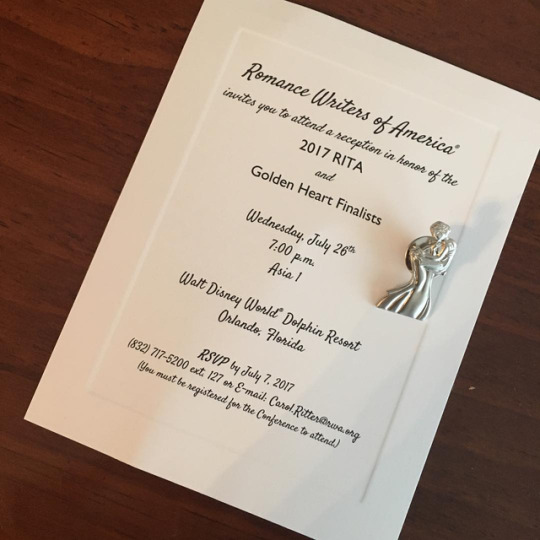 Romance Writers of America®
invites you to attend a reception in honor of the
2017 RITA
and
Golden Heart Finalists
Wednesday, July 26th
7:00 p.m.
Asia 1
Walt Disney World® Dolphin Resort
Orlando, Florida
RSVP by July 7, 2017
(832) 717-5200 ext. 127 or E-mail: Carol.Ritter@rwa.org
(You must be registered for the Conference to attend.)